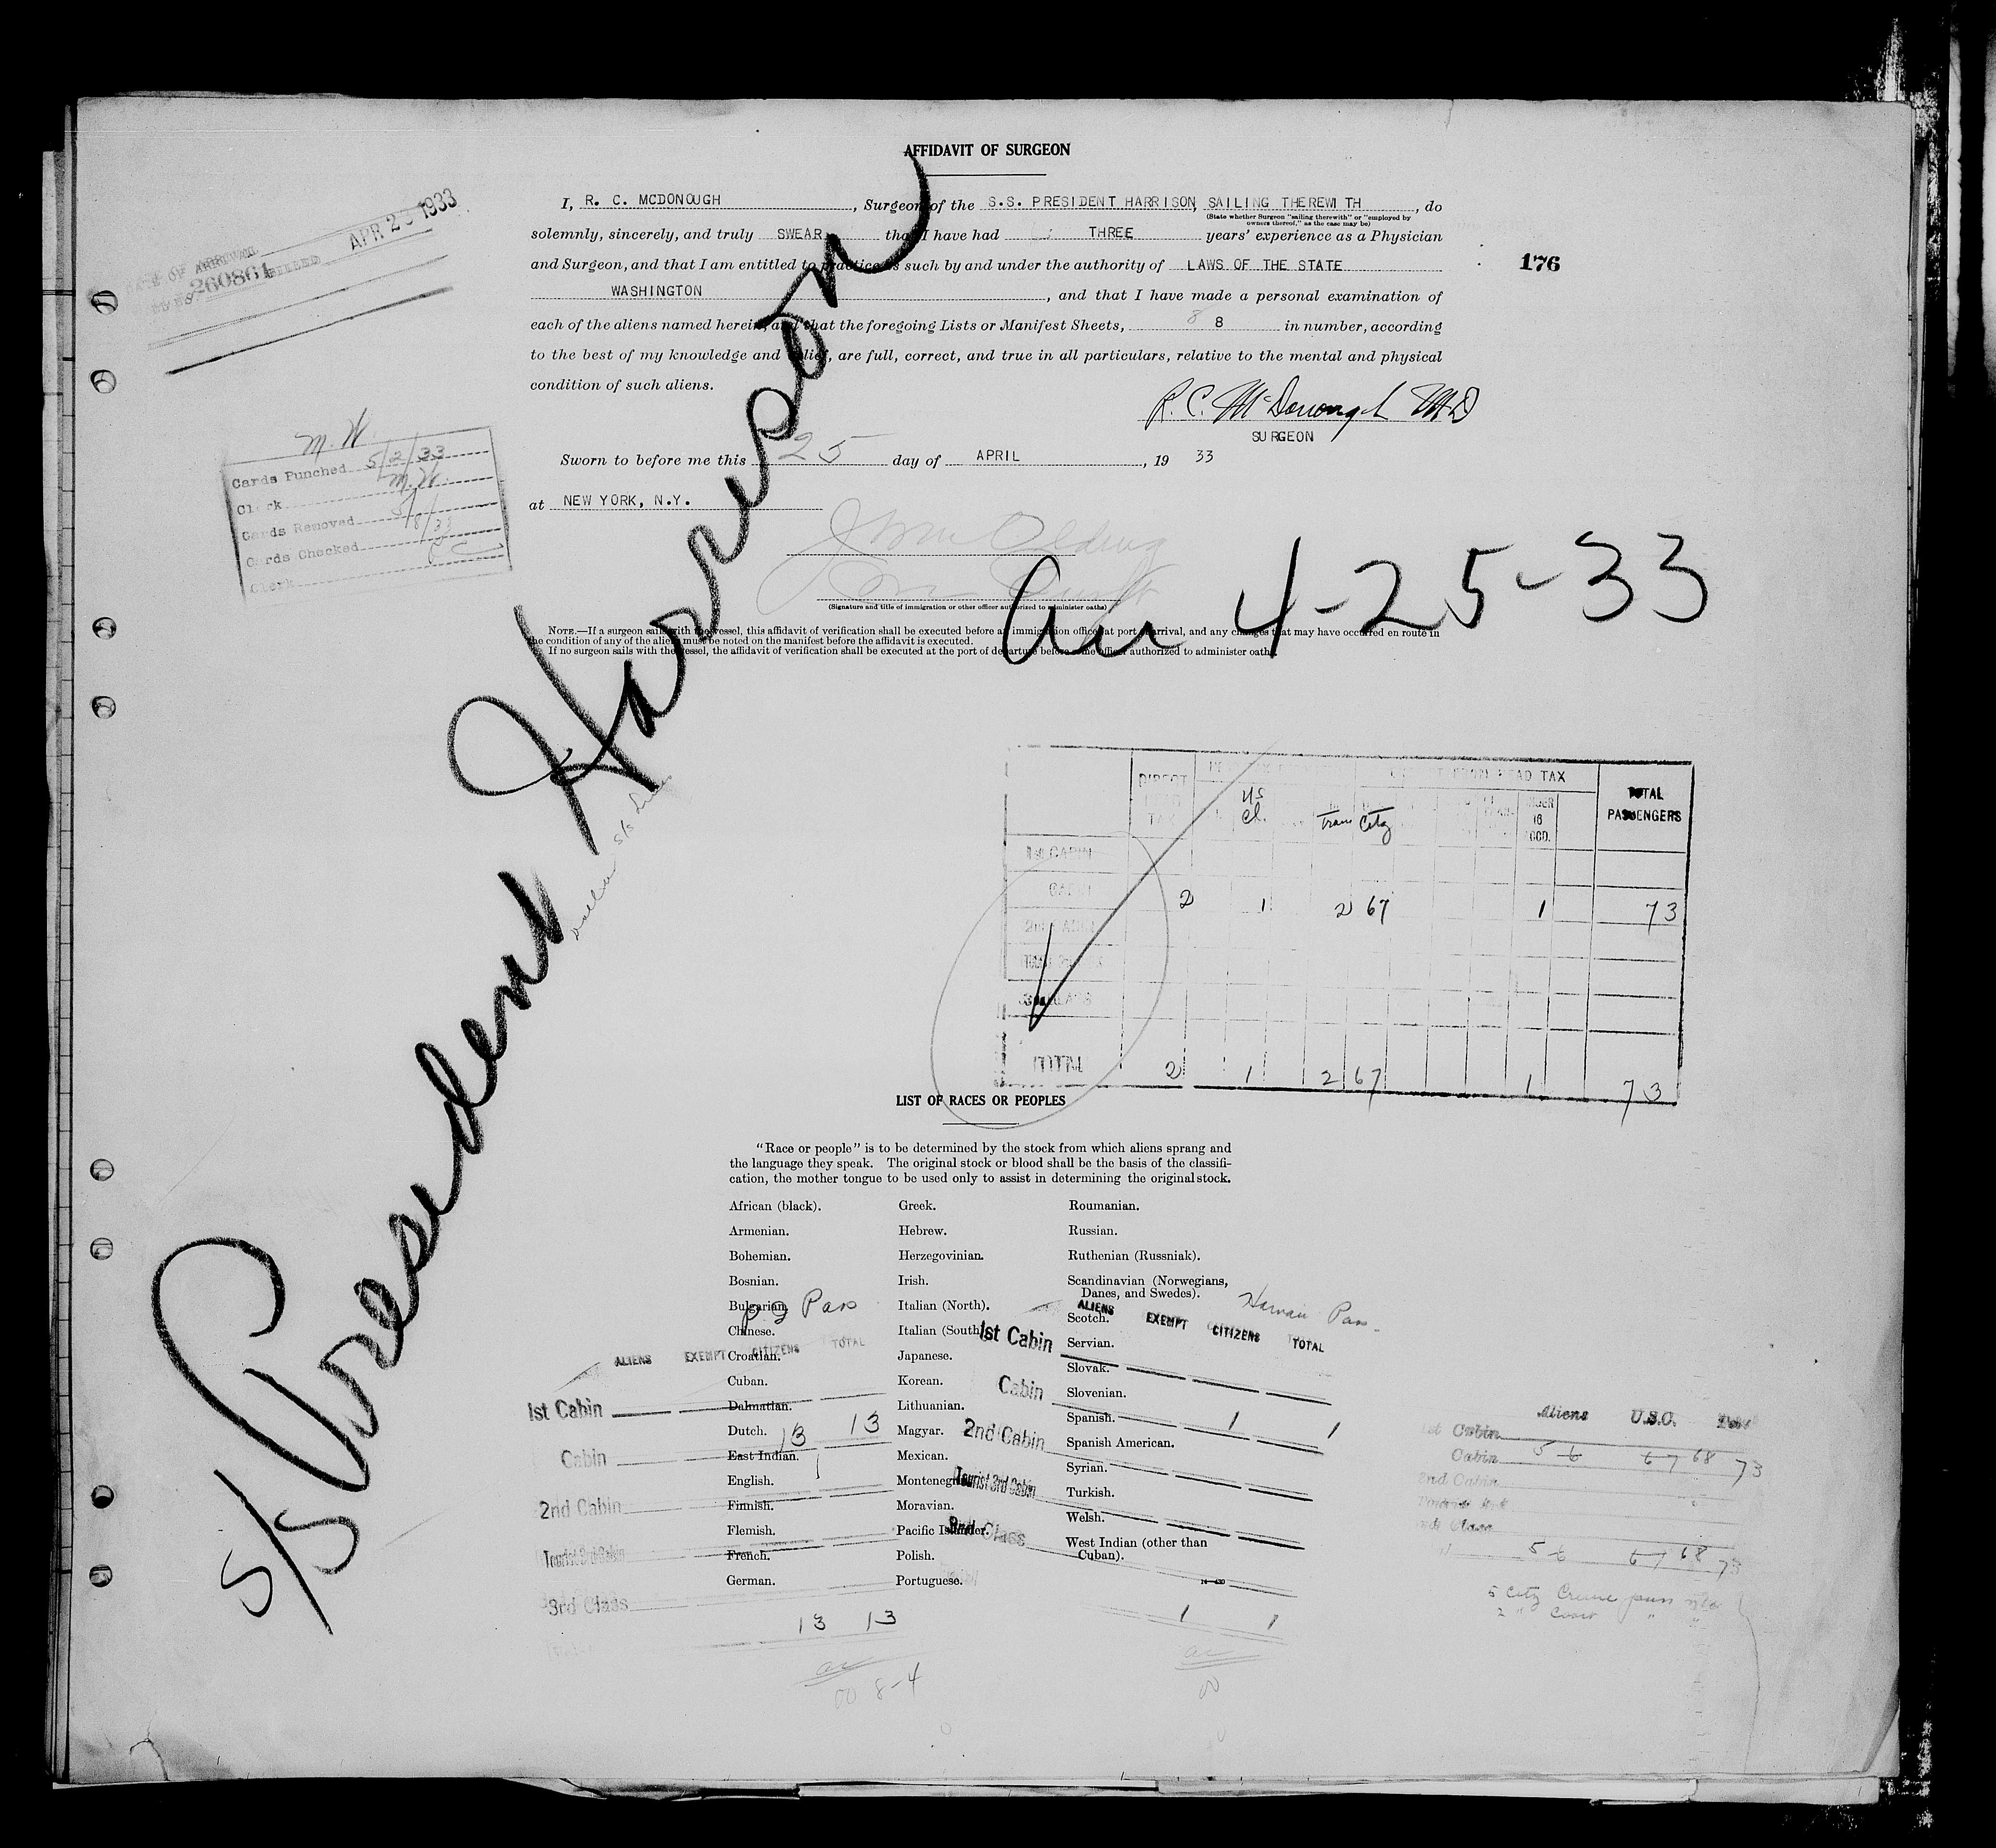 AFFIDAVIT OF SURGEON
I, R. C. MCDONOUGH, Surgeon of the S.S. PRESIDENT HARRISON, SAILING THEREWITH, do
(State whether Surgeon "sailing therewith" or "employed by owners thereof," as the case may be)
solemnly, sincerely, and truly SWEAR that I have had THREE years' experience as a Physician
and Surgeon, and that I am entitled to practice as such by and under the authority of LAWS OF THE STATE
WASHINGTON, and that I have made a personal examination of
each of the aliens named herein, and that the foregoing Lists or Manifest Sheets, 8 8 in number, according
to the best of my knowledge and belief, are full, correct, and true in all particulars, relative to the mental and physical
condition of such aliens.
R. C. McDonough MD
SURGEON
Sworn to before me this 25 day of APRIL, 19 33
at NEW YORK, N.Y.
(Signature and title of immigration or other officer authorized to administer oaths)
NOTE.—If a surgeon sails with the vessel, this affidavit of verification shall be executed before an immigration officer at port of arrival, and any changes that may have occurred en route in
the condition of any of the aliens must be noted on the manifest before the affidavit is executed.
If no surgeon sails with the vessel, the affidavit of verification shall be executed at the port of departure before some officer authorized to administer oaths.
176
260861
APR 25 1933
M. W.
Cards Punched 5/2/33
Clerk M.W.
Cards Removed 5/8/33
Cards Checked
Clerk
S/S President Harrison
Arr 4-25-33
DIRECT HEAD TAX
HEAD TAX
US Cl.
Tran City
UNDER 16 ACCD.
TOTAL PASSENGERS
1st CABIN
CABIN 2 1 2 67 1 73
2nd CABIN
3rd CLASS
TOTAL 2 1 2 67 1 73
LIST OF RACES OR PEOPLES
"Race or people" is to be determined by the stock from which aliens sprang and
the language they speak. The original stock or blood shall be the basis of the classifi-
cation, the mother tongue to be used only to assist in determining the original stock.
African (black).
Armenian.
Bohemian.
Bosnian.
Bulgarian.
Chinese.
Croatian.
Cuban.
Dalmatian.
Dutch.
East Indian.
English.
Finnish.
Flemish.
French.
German.
Greek.
Hebrew.
Herzegovinian.
Irish.
Italian (North).
Italian (South).
Japanese.
Korean.
Lithuanian.
Magyar.
Mexican.
Montenegrin.
Moravian.
Pacific Islander.
Polish.
Portuguese.
Roumanian.
Russian.
Ruthenian (Russniak).
Scandinavian (Norwegians,
Danes, and Swedes).
Scotch.
Servian.
Slovak.
Slovenian.
Spanish.
Spanish American.
Syrian.
Turkish.
Welsh.
West Indian (other than
Cuban).
Pas
ALIENS EXEMPT CITIZENS TOTAL
1st Cabin
Cabin 13 13
2nd Cabin
Tourist 3rd Cabin
3rd Class
13 13
8-4
Hawaii Pas
ALIENS EXEMPT CITIZENS TOTAL
1st Cabin
Cabin 1 1
2nd Cabin
Tourist 3rd Cabin
3rd Class
1 1
Aliens U.S.C.
1st Cabin
Cabin 5 6 67 68 73
2nd Cabin
3rd Class
5 6 67 68 73
5 City
2 "